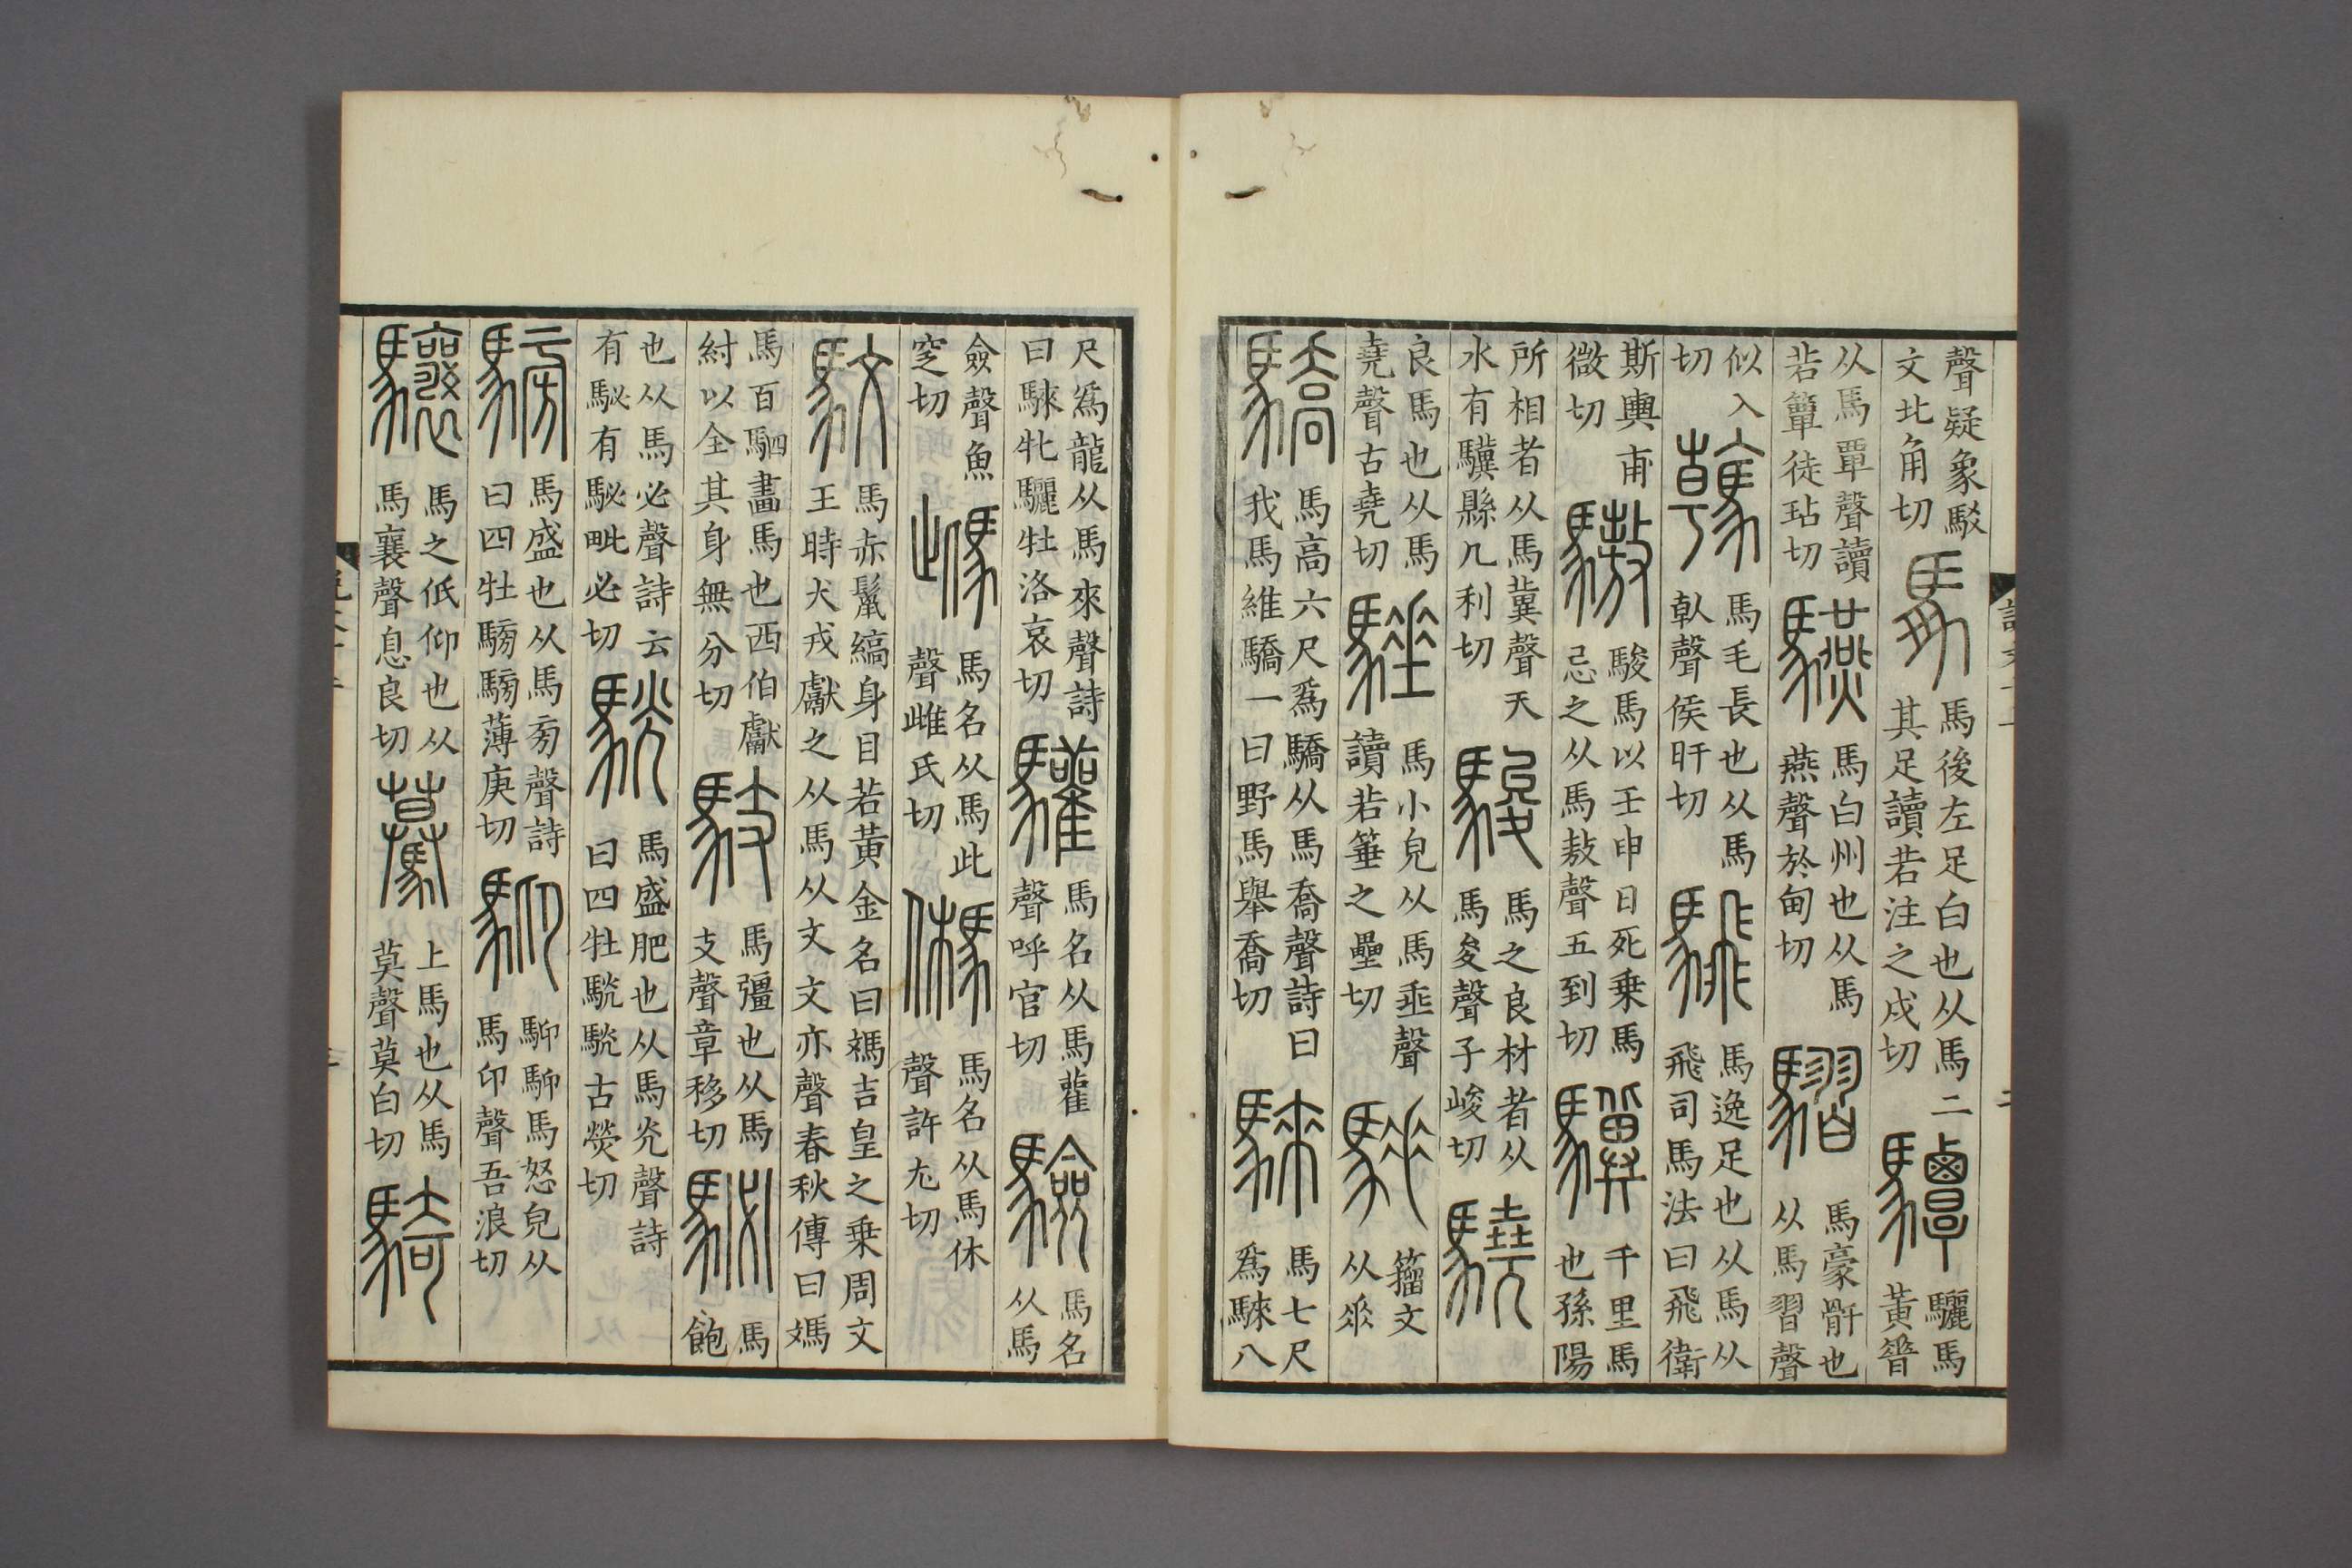 聲疑象駁
文北角切
馵
馬後左足白也从馬二
其足讀若注之戍切
驔
驪馬
黃脊
从馬覃聲讀
若簟徒玷切
驠
馬白州也从馬
燕聲於甸切
騽
馬豪骭也
从馬習聲
似入
切
䮧
馬毛長也从馬
倝聲侯旰切
騛
馬逸足也从馬从
飛司馬法曰飛衛
斯輿甫
微切
驁
駿馬以壬申日死乗馬
忌之从馬敖聲五到切
驥
千里馬
也孫陽
所相者从馬冀聲天
水有驥縣几利切
駿
馬之良材者从
馬夋聲子峻切
驍
良馬也从馬
堯聲古堯切
䮔
馬小皃从馬垂聲
讀若箠之壘切
籀文
从𠂹
驕
馬高六尺爲驕从馬喬聲詩曰
我馬維驕一曰野馬舉喬切
騋
馬七尺
爲騋八
尺爲龍从馬來聲詩
曰騋牝驪牡洛哀切
驩
馬名从馬雚
聲呼官切
驗
馬名
从馬
僉聲魚
窆切
馬名从馬此
聲雌氏切
馬名从馬休
聲許尤切
馼
馬赤鬣縞身目若黃金名曰媽吉皇之乗周文
王時犬戎獻之从馬从文文亦聲春秋傳曰媽
馬百駟畫馬也西伯獻
紂以全其身無分切
馬彊也从馬
支聲章移切
駜
馬
飽
也从馬必聲詩云
有駜有駜毗必切
駫
馬盛肥也从馬光聲詩
曰四牡駫駫古熒切
騯
馬盛也从馬旁聲詩
曰四牡騯騯薄庚切
䭹
䭹䭹馬怒皃从
馬卬聲吾浪切
驤
馬之低仰也从
馬襄聲息良切
驀
上馬也从馬
莫聲莫白切
騎